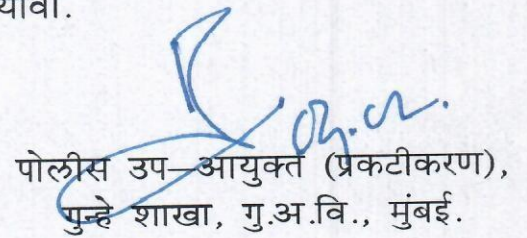 यावा.
पोलीस उप–आयुक्त (प्रकटीकरण),
गुन्हे शाखा, गु.अ.वि., मुंबई.